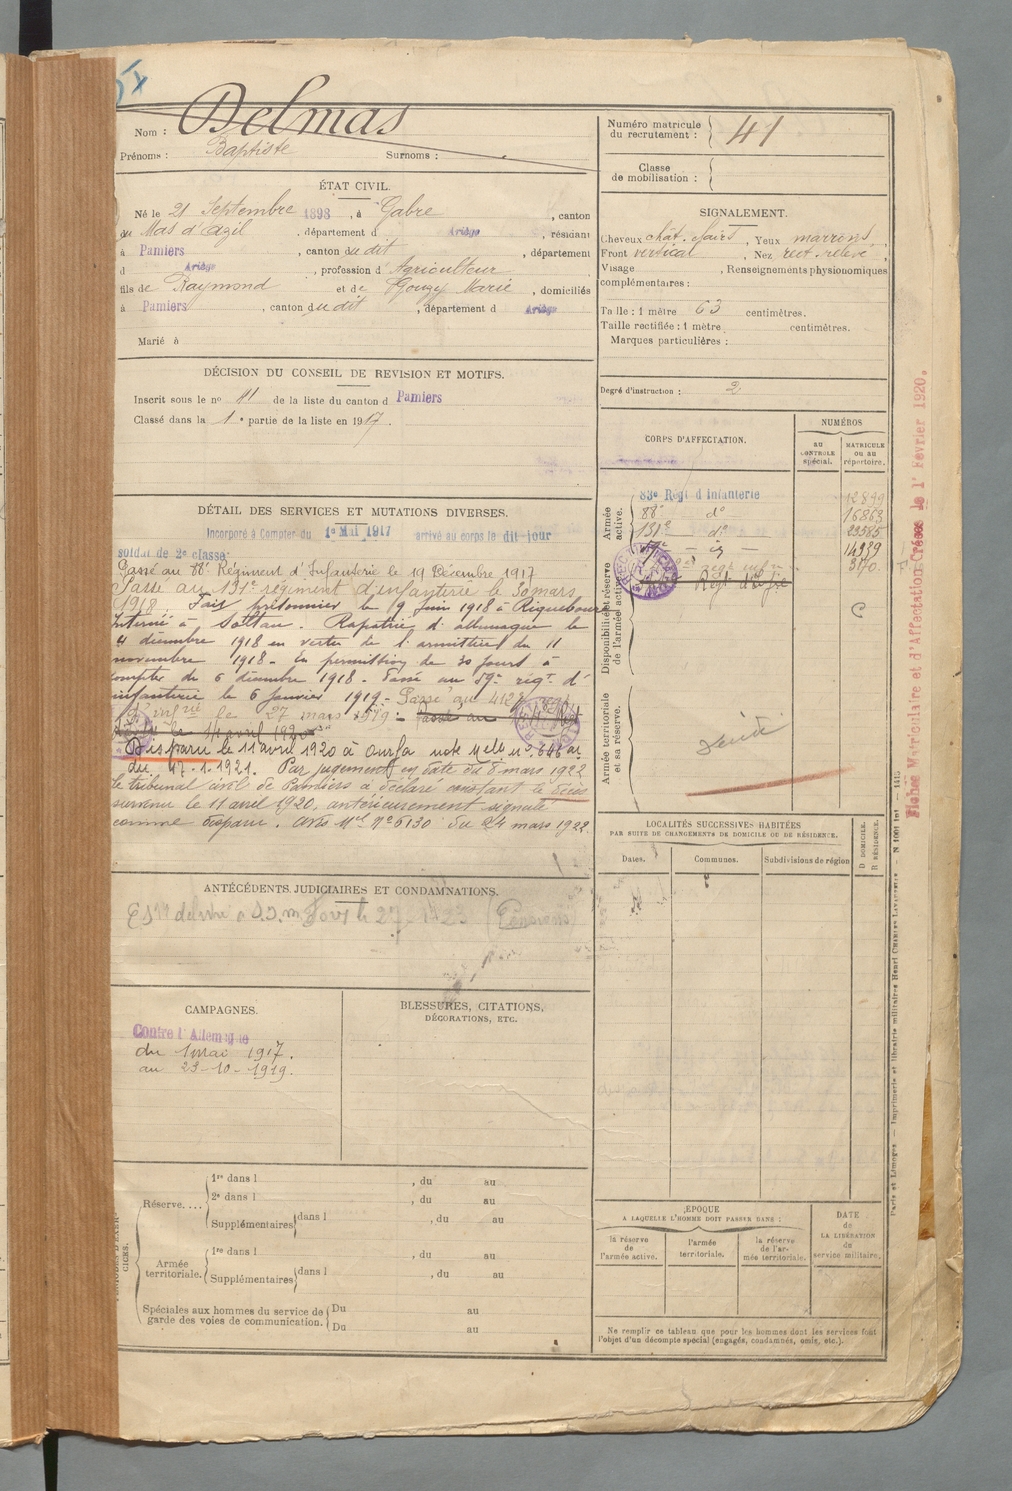 Nom : Delmas
Prénoms : Baptiste Surnoms :
Numéro matricule du recrutement : 41
Classe de mobilisation :
ÉTAT CIVIL.
Né le 21 Septembre 1898, à Gabre, canton
du Mas d'Azil, département d Ariège, résidant
à Pamiers, canton du dit, département
d Ariège, profession d'Agriculteur
fils de Raymond et de Gouzy Marie, domiciliés
à Pamiers, canton du dit, département d Ariège
Marié à
SIGNALEMENT.
Cheveux chât. clairs, Yeux marrons,
Front vertical, Nez rect. relevé,
Visage , Renseignements physionomiques
complémentaires :
Taille : 1 mètre 63 centimètres.
Taille rectifiée : 1 mètre centimètres.
Marques particulières :
Degré d'instruction : 2
DÉCISION DU CONSEIL DE REVISION ET MOTIFS.
Inscrit sous le n° 11 de la liste du canton d Pamiers
Classé dans la 1e partie de la liste en 1917.
DÉTAIL DES SERVICES ET MUTATIONS DIVERSES.
Incorporé à Compter du 1e Mai 1917 arrivé au corps le dit jour
soldat de 2e classe
Passé au 88e Régiment d'Infanterie le 19 Décembre 1917
Passé au 131e régiment d'infanterie le 30 mars
1918. Fait prisonnier le 9 Juin 1918 à
Interné à Soltau. Rapatrié d'allemagne le
4 décembre 1918 en vertu de l'armistice du 11
novembre 1918. En permission de 30 jours à
compter du 6 décembre 1918. Passé au 59e régt. d'
infanterie le 6 Janvier 1919. Passé au 412e régt
d'infrie le 27 mars 1919. Passé au
le 11 avril 1920
Disparu le 11 avril 1920 à Ourfa note Melle n° 646 ac
du 17-1-1921. Par jugement en date du 8 mars 1922
le tribunal civil de Pamiers a déclaré constant le décès
survenu le 11 avril 1920, antérieurement signalé
comme disparu. Avis Mel N° 6130 du 24 mars 1922
CORPS D'AFFECTATION.
NUMÉROS
AU CONTROLE spécial.
MATRICULE OU AU répertoire.
Armée active.
83e Régt d'Infanterie 12899
88e do 16863
131e do 23585
14939
3170
Disponibilité et réserve de l'armée active.
C
Armée territoriale et sa réserve.
LOCALITÉS SUCCESSIVES HABITÉES
PAR SUITE DE CHANGEMENTS DE DOMICILE OU DE RÉSIDENCE.
Dates. Communes. Subdivisions de région
D DOMICILE.
R RÉSIDENCE.
ANTÉCÉDENTS JUDICIAIRES ET CONDAMNATIONS.
CAMPAGNES.
Contre l'Allemagne
du 1 mai 1917.
au 23-10-1919.
BLESSURES, CITATIONS,
DÉCORATIONS, ETC.
Réserve....
1re dans l , du au
2e dans l , du au
Supplémentaires dans l , du au
Armée territoriale.
1re dans l , du au
Supplémentaires dans l , du au
Spéciales aux hommes du service de garde des voies de communication.
Du au
Du au
ÉPOQUE
A LAQUELLE L'HOMME DOIT PASSER DANS :
la réserve de l'armée active.
l'armée territoriale.
la réserve de l'armée territoriale.
DATE de LA LIBÉRATION du service militaire.
Ne remplir ce tableau que pour les hommes dont les services font
l'objet d'un décompte spécial (engagés, condamnés, omis, etc.).
Fiches Matriculaire et d'Affectation Créées le 1er Février 1920.
Paris et Limoges. — Imprimerie et librairie militaires Henri CHARLES-LAVAUZELLE